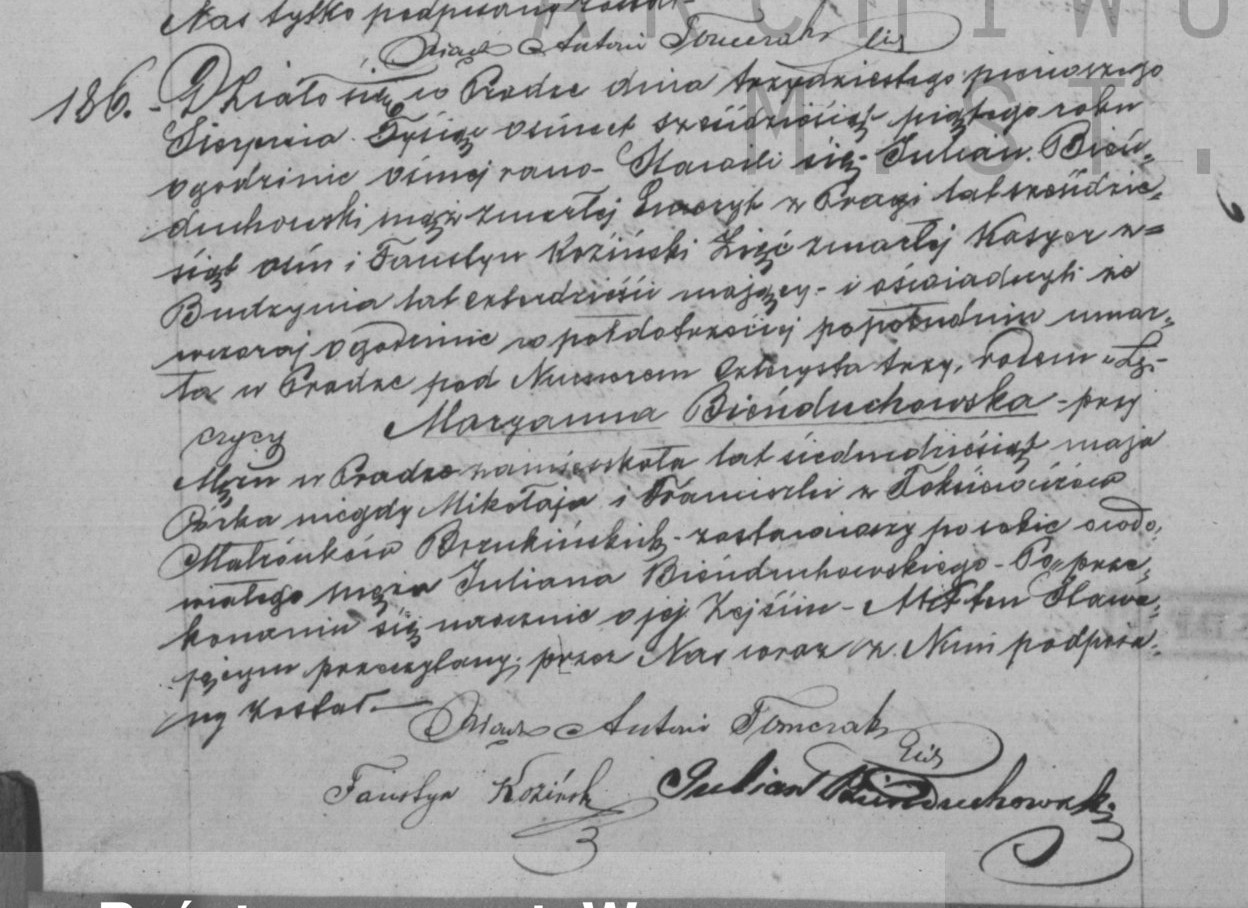 Nas tylko podpisany został
Xiądz Antoni Tomczak
ARCHIWU
M ST.
186. Działo się w Pradze dnia trzydziestego pierwszego
Sierpnia Tysiąc ośmset sześćdziesiąt piątego roku
o godzinie ósmej rano - Stawili się Julian Bień„
duchowski mąż zmarłej z Pragi lat sześćdzie„
siąt ośm i Faustyn Koziński Zięć zmarłej
Budzynia lat czterdzieści mający - i oświadczyli że
wczoraj o godzinie wpół do trzeciej popołudniu umar„
ła w Pradze pod Numerem Czterysta trzy, rodem z Łę-
czycy Maryanna Bieńduchowska - przy
Mężu w Pradze zamieszkała lat siedmdziesiąt miała
Córka niegdy Mikołaja i Franciszki z
Małżonków Brzukińskich - zostawiwszy po sobie owdo„
wiałego męża Juliana Bieńduchowskiego - Po prze„
konaniu się naocznie o jej Zejściu - Akt ten Stawa„
jącym przeczytany, przez Nas wraz z Nimi podpisa„
ny został.
Xiądz Antoni Tomczak
Faustyn Koziński Julian Bieńduchowski